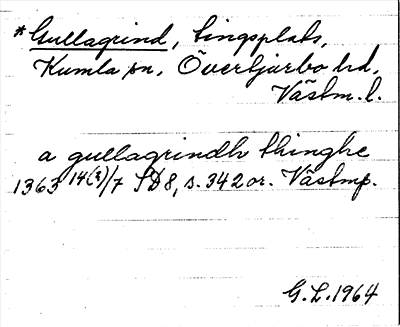 *Gullagrind, tingsplats,
Kumla sn, Övertjurbo hd,
Västm. l.
a gullagrindh thinghe
1363 14(?)/7 SD8, s. 342 or. Västmp.
G.L. 1964